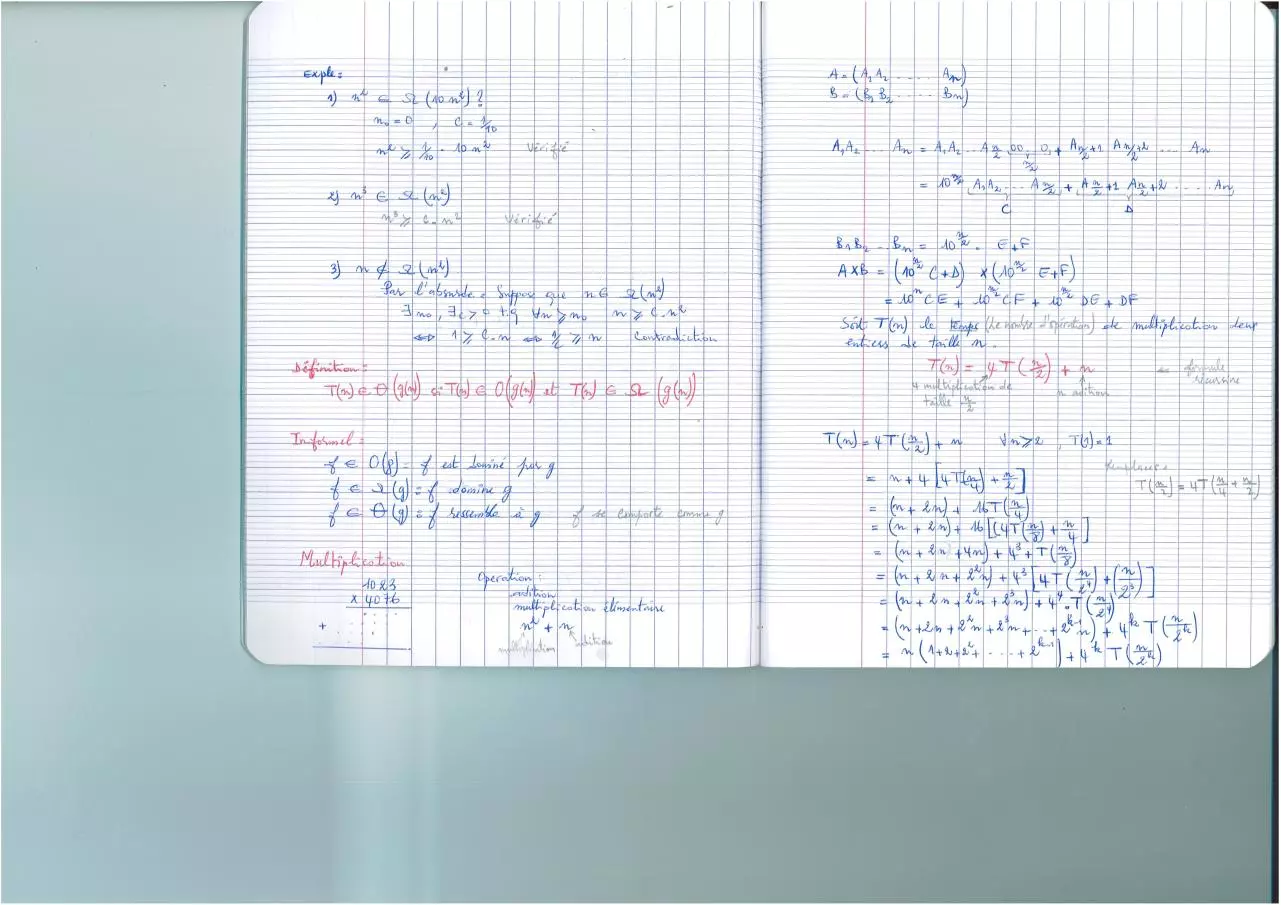 Exple :
1) n² ∈ Ω(10n²) ?
n₀ = 0 , C = 1/10
n² ≥ 1/10 · 10n² Vérifié
2) n³ ∈ Ω(n²)
n³ ≥ c·n² Vérifié
3) n ∉ Ω(n²)
Par l'absurde : Suppose que n ∈ Ω(n²)
∃ n₀, ∃ c > 0 t.q ∀n ≥ n₀ n ≥ c·n²
⇔ 1 ≥ c·n ⇔ 1/c ≥ n Contradiction
Définition :
T(n) ∈ Θ(g(n)) si T(n) ∈ O(g(n)) et T(n) ∈ Ω(g(n))
Informel :
f ∈ O(g) = f est dominé par g
f ∈ Ω(g) = f domine g
f ∈ Θ(g) = f ressemble à g f se comporte comme g
Multiplication
1023
× 4076
+
Operation :
adition
multiplication élémentaire
n² + n
multiplication adition
A = (A₁A₂ ..... Aₙ)
B = (B₁B₂ ..... Bₙ)
A₁A₂ .... Aₙ = A₁A₂ ... An/2 00...0 + An/2+1 An/2+2 .... An
n/2
= 10^(n/2) A₁A₂ ... An/2 + An/2+1 An/2+2 ..... An
C D
B₁B₂ ... Bₙ = 10^(n/2) · E+F
A×B = (10^(n/2) C+D) × (10^(n/2) E+F)
= 10^n CE + 10^(n/2) CF + 10^(n/2) DE + DF
Soit T(n) le temps (le nombre d'opération) de multiplication deux
entiers de taille n.
T(n) = 4T(n/2) + n ⇐ formule récursive
4 multiplication de
taille n/2
n adition
T(n) = 4T(n/2) + n ∀n≥2 , T(1)=1
Remplacer :
T(n/2) = 4T(n/4 + n/2)
= n + 4[4T(n/4) + n/2]
= (n + 2n) + 16T(n/4)
= (n + 2n) + 16[(4T(n/8) + n/4]
= (n + 2n + 4n) + 4³ + T(n/8)
= (n + 2n + 2²n) + 4³[4T(n/2⁴) + (n/2³)]
= (n + 2n + 2²n + 2³n) + 4⁴ · T(n/2⁴)
= (n + 2n + 2²n + 2³n + ... + 2^(k-1)n) + 4^k T(n/2^k)
= n(1+2+2² + .... + 2^(k-1)) + 4^k T(n/2^k)